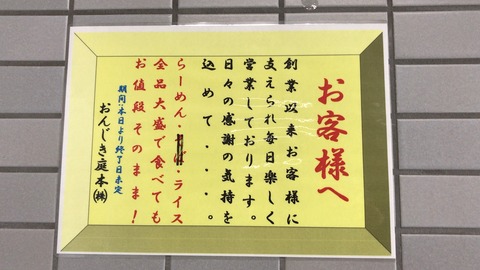 お客様へ
創業以来お客様に
支えられ毎日楽しく
営業しております。
日々の感謝の気持を
込めて・・・。
らーめん・そば・ライス
全品大盛で食べても
お値段そのまま!
期間:本日より終了日未定
おんじき庭本㈱